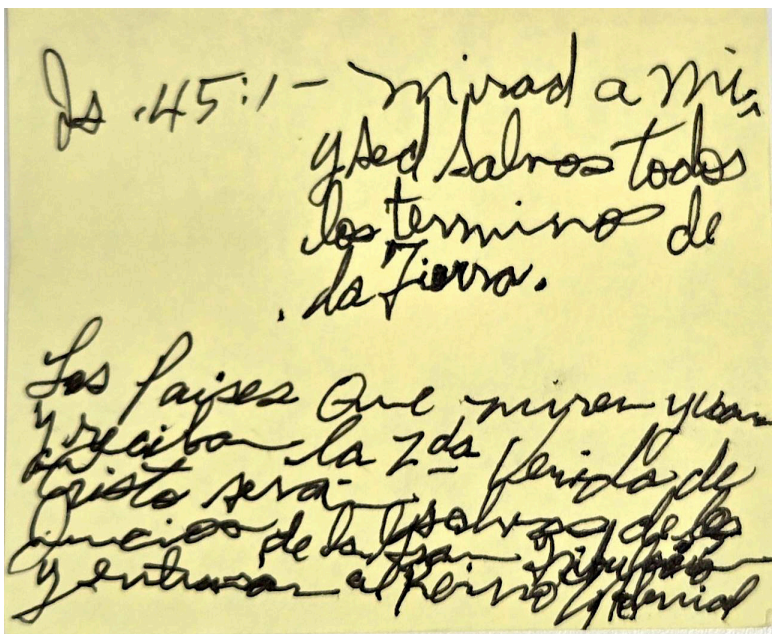 Is. 45:1 - mirad a mi,
y sed salvos todos
los terminos de
la Tierra.
Los Paises Que miren y vean
y reciban la 2da Venida de
Cristo seran salvos de los
juicios de la Gran Tribulación
y entraran al Reino Milenial